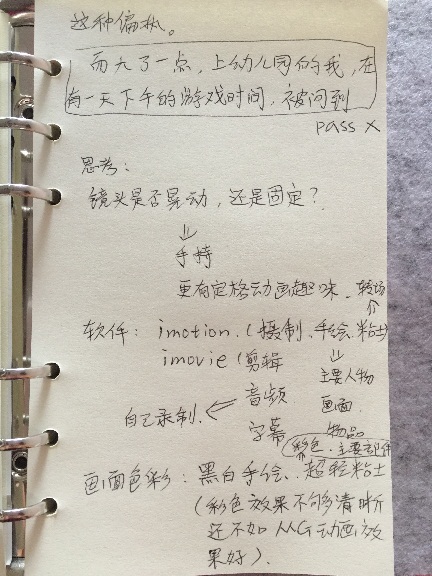 这种偏执。
而大了一点，上幼儿园的我，在
有一天下午的游戏时间，被问到
pass ×
思考：
镜头是否晃动，还是固定？
⇓
手持
更有定格动画趣味. 转场
软件： imotion.（摄制、手绘、粘土）
imovie（剪辑
主要人物
音频
画面.
自己录制.
字幕
物品
彩色、主要
画面色彩：黑白手绘、超轻粘土
（彩色效果不够清晰
还不如MG动画效
果好）.